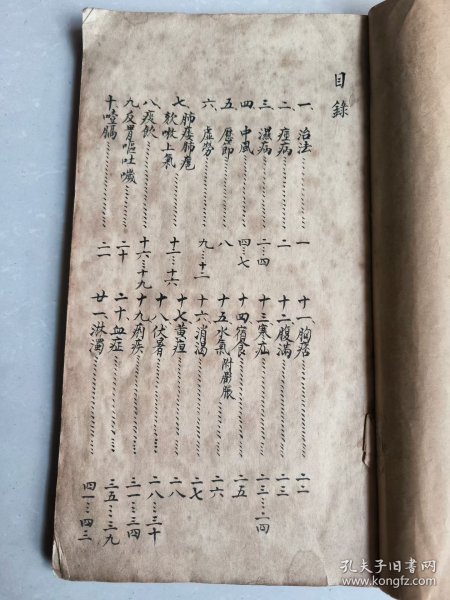 目錄
一、治法……一
二、痙病……二
三、濕病……二…四
四、中風……四…七
五、歷節……八
六、虛勞……九…十一
七、肺痿肺
欬嗽上氣……十一…十六
八、痰飲……十六…十九
九、反胃嘔吐噦……二十
十、噎膈……二一
十一、胸痞……二二
十二、腹滿……二三
十三、寒疝……二三…二四
十四、宿食……二五
十五、水氣附膨脹……二六
十六、消渴……二七
十七、黃疸……二八
十八、伏暑……二八…三十
十九、痢疾……三一…三四
二十、血症……三五…三九
廿一、淋濁……四一…四三
孔夫子旧书网
www.kongfz.com